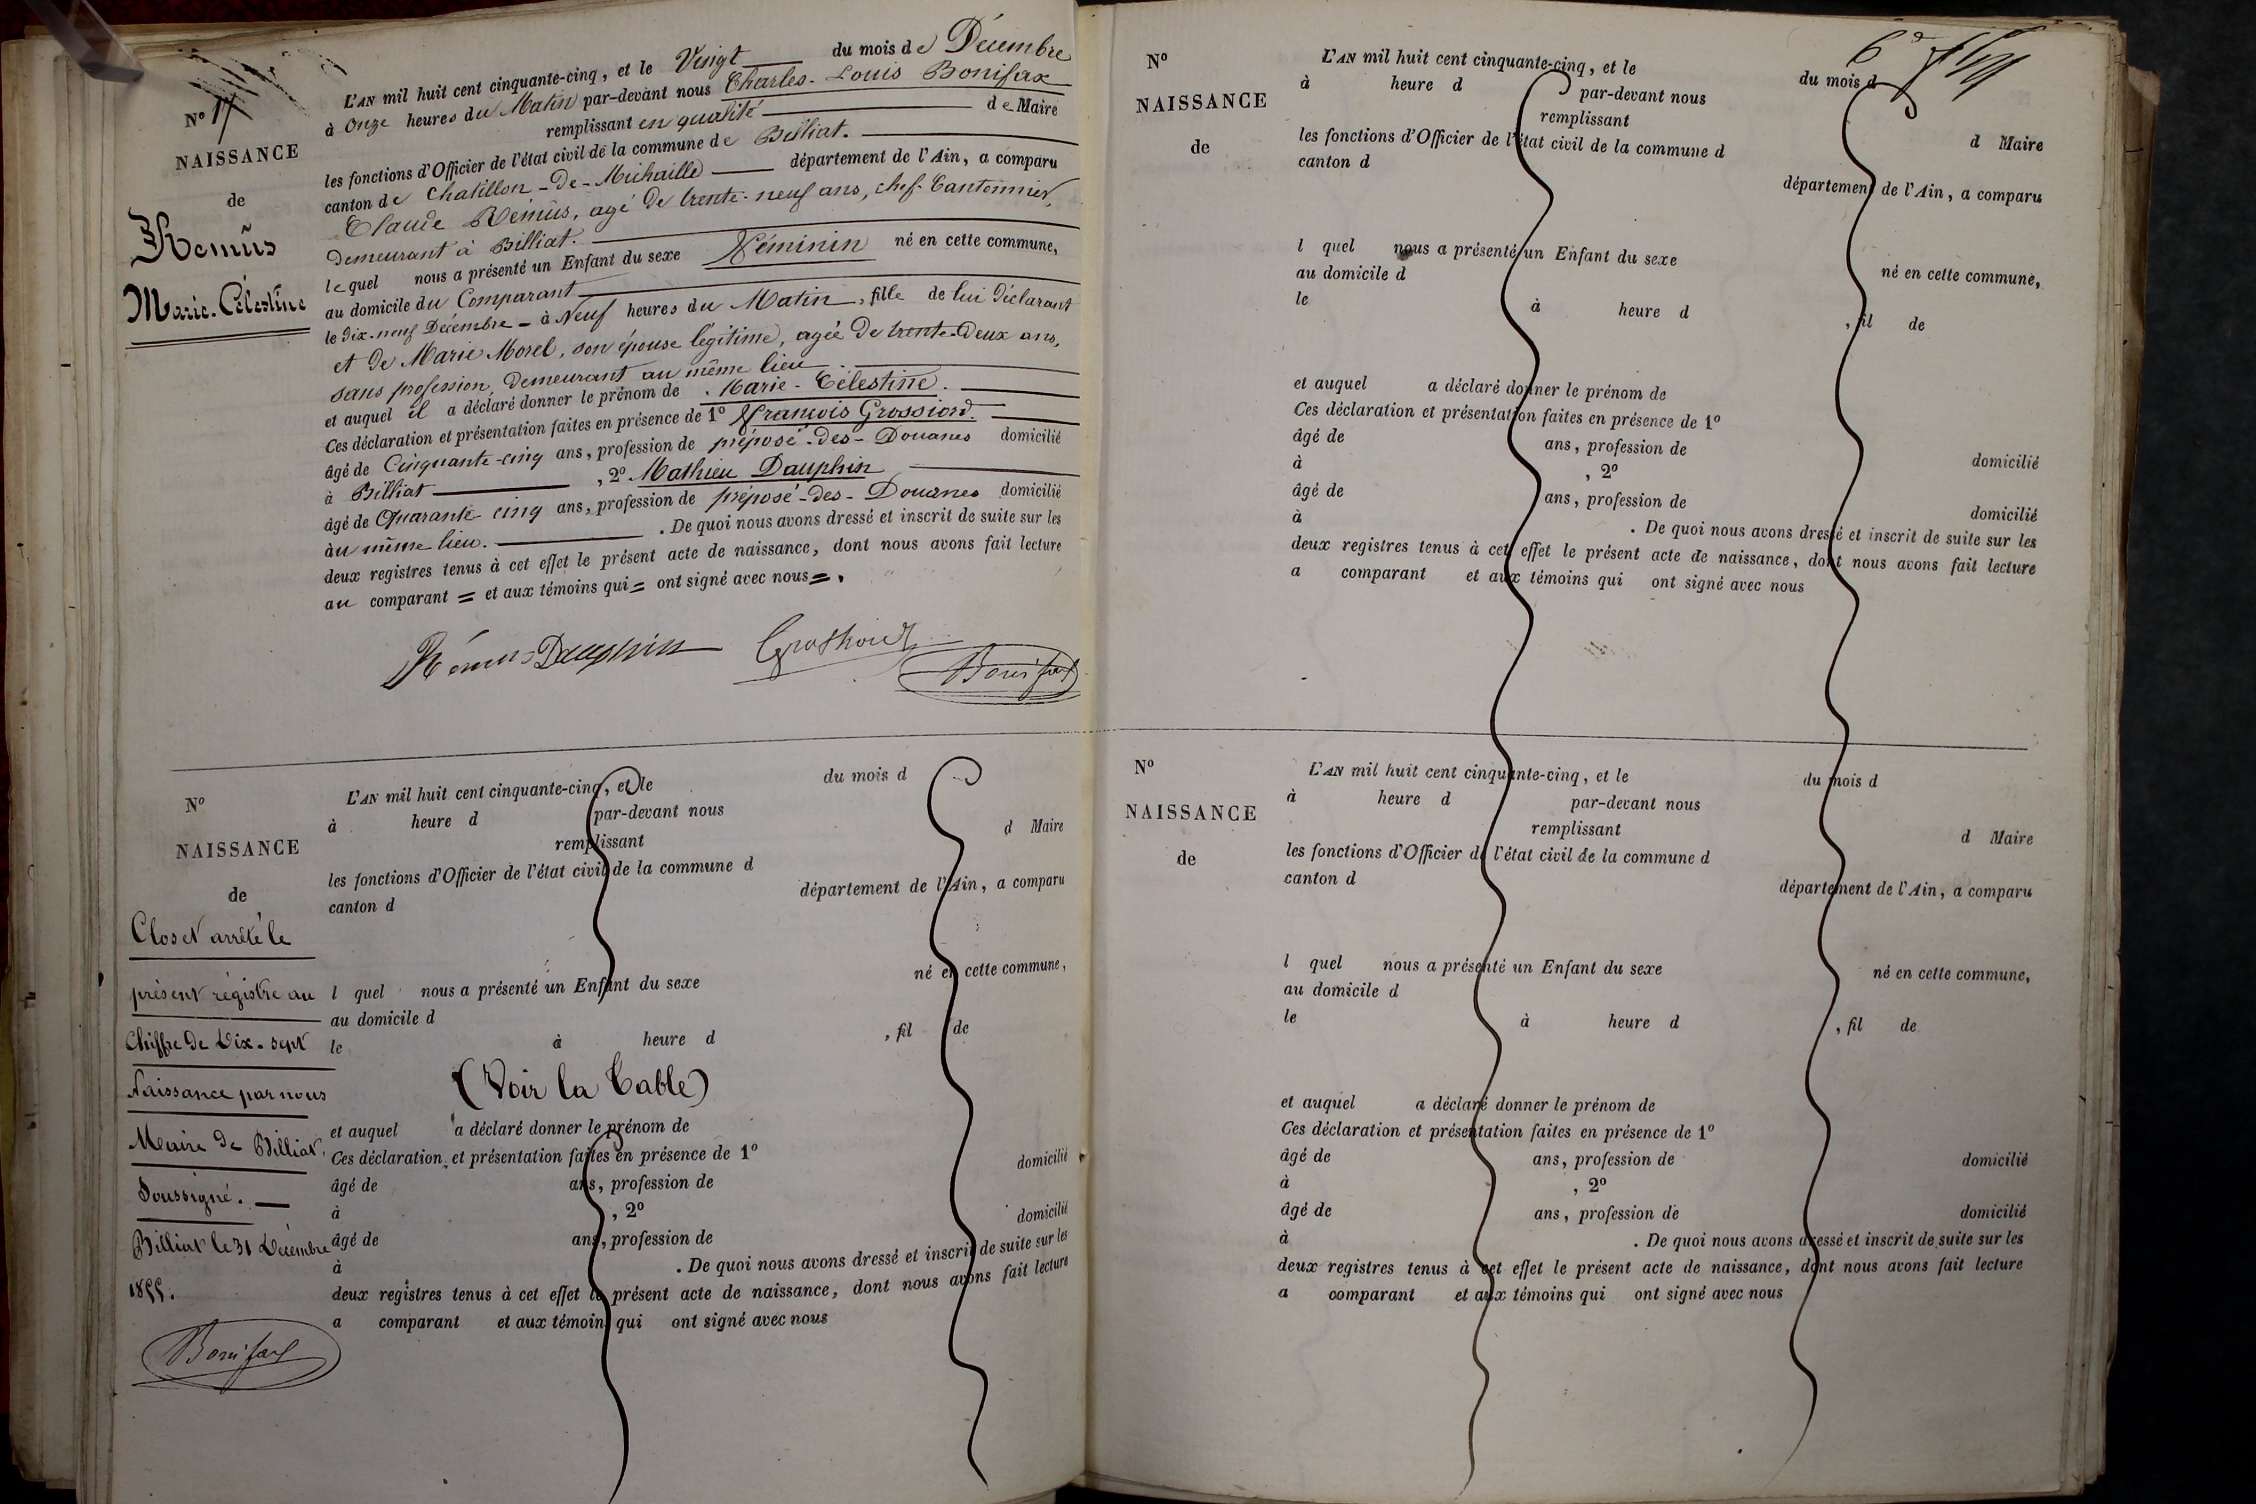 N° 17
NAISSANCE
de
Remûs
Marie-Célestine
L'AN mil huit cent cinquante-cinq, et le Vingt du mois de Décembre
à Onze heures du Matin par-devant nous Charles-Louis Bonifax
remplissant en qualité de Maire
les fonctions d'Officier de l'état civil de la commune de Billiat.
canton de Chatillon-de-Michaille département de l'Ain, a comparu
Claude Rémûs, agé de trente-neuf ans, chef-Cantonnier,
demeurant à Billiat.
lequel nous a présenté un Enfant du sexe Féminin né en cette commune,
au domicile du Comparant
le dix-neuf Décembre à Neuf heures du Matin, fille de lui déclarant
et de Marie Morel, son épouse légitime, agée de trente-deux ans,
sans profession, demeurant au même lieu
et auquel il a déclaré donner le prénom de Marie-Célestine.
Ces déclaration et présentation faites en présence de 1° François Grossiord.
âgé de Cinquante-cinq ans, profession de préposé-des-Douanes domicilié
à Billiat, 2° Mathieu Dauphin
âgé de Quarante-cinq ans, profession de préposé-des-Douanes domicilié
àu même lieu. . De quoi nous avons dressé et inscrit de suite sur les
deux registres tenus à cet effet le présent acte de naissance, dont nous avons fait lecture
au comparant = et aux témoins qui = ont signé avec nous =.
Rémus Dauphin Grossiord
Bonifax
N°
NAISSANCE
de
Clos et arrêté le
présent régistre au
Chiffre de Dix-sept
Naissance par nous
Maire de Billiat,
Soussigné.
Billiat le 31 Décembre
1855.
Bonifax
L'AN mil huit cent cinquante-cinq, et le du mois d
à heure d par-devant nous
remplissant d Maire
les fonctions d'Officier de l'état civil de la commune d
canton d département de l'Ain, a comparu
l quel nous a présenté un Enfant du sexe né en cette commune,
au domicile d
le à heure d , fil de
(Voir la Table)
et auquel a déclaré donner le prénom de
Ces déclaration et présentation faites en présence de 1°
âgé de ans, profession de domicilié
à , 2°
âgé de ans, profession de domicilié
à . De quoi nous avons dressé et inscrit de suite sur les
deux registres tenus à cet effet le présent acte de naissance, dont nous avons fait lecture
a comparant et aux témoins qui ont signé avec nous
6e
N°
NAISSANCE
de
L'AN mil huit cent cinquante-cinq, et le du mois d
à heure d par-devant nous
remplissant d Maire
les fonctions d'Officier de l'état civil de la commune d
canton d département de l'Ain, a comparu
l quel nous a présenté un Enfant du sexe né en cette commune,
au domicile d
le à heure d , fil de
et auquel a déclaré donner le prénom de
Ces déclaration et présentation faites en présence de 1°
âgé de ans, profession de domicilié
à , 2°
âgé de ans, profession de domicilié
à . De quoi nous avons dressé et inscrit de suite sur les
deux registres tenus à cet effet le présent acte de naissance, dont nous avons fait lecture
a comparant et aux témoins qui ont signé avec nous
N°
NAISSANCE
de
L'AN mil huit cent cinquante-cinq, et le du mois d
à heure d par-devant nous
remplissant d Maire
les fonctions d'Officier de l'état civil de la commune d
canton d département de l'Ain, a comparu
l quel nous a présenté un Enfant du sexe né en cette commune,
au domicile d
le à heure d , fil de
et auquel a déclaré donner le prénom de
Ces déclaration et présentation faites en présence de 1°
âgé de ans, profession de domicilié
à , 2°
âgé de ans, profession de domicilié
à . De quoi nous avons dressé et inscrit de suite sur les
deux registres tenus à cet effet le présent acte de naissance, dont nous avons fait lecture
a comparant et aux témoins qui ont signé avec nous